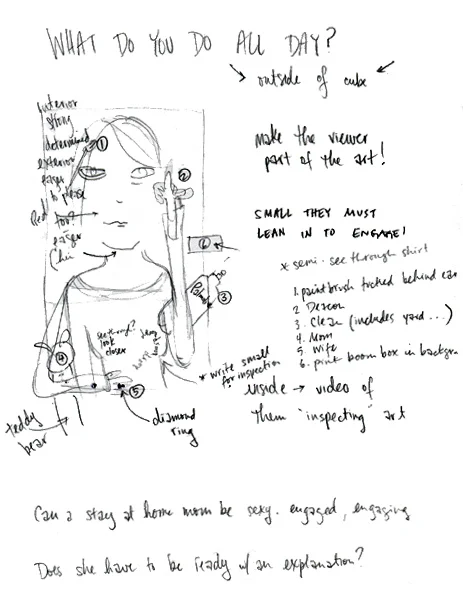 WHAT DO YOU DO ALL DAY?
outside of cube
interior
strong
determined
exterior
eager
to please
Red
eager
Chin
1
2
6
3
4
5
make the viewer
part of the art!
SMALL THEY MUST
LEAN IN TO ENGAGE!
* semi-see through shirt
1. paintbrush tucked behind ear
2 Deacon
3. Clean (includes yard...)
4. Mom
5 Wife
6. pink boom box in backgr
see through?
look
closer
* write small
for inspection
inside → video of
them "inspecting" art
teddy
bear
diamond
ring
Can a stay at home mom be sexy. engaged, engaging
Does she have to be ready w/ an explanation?